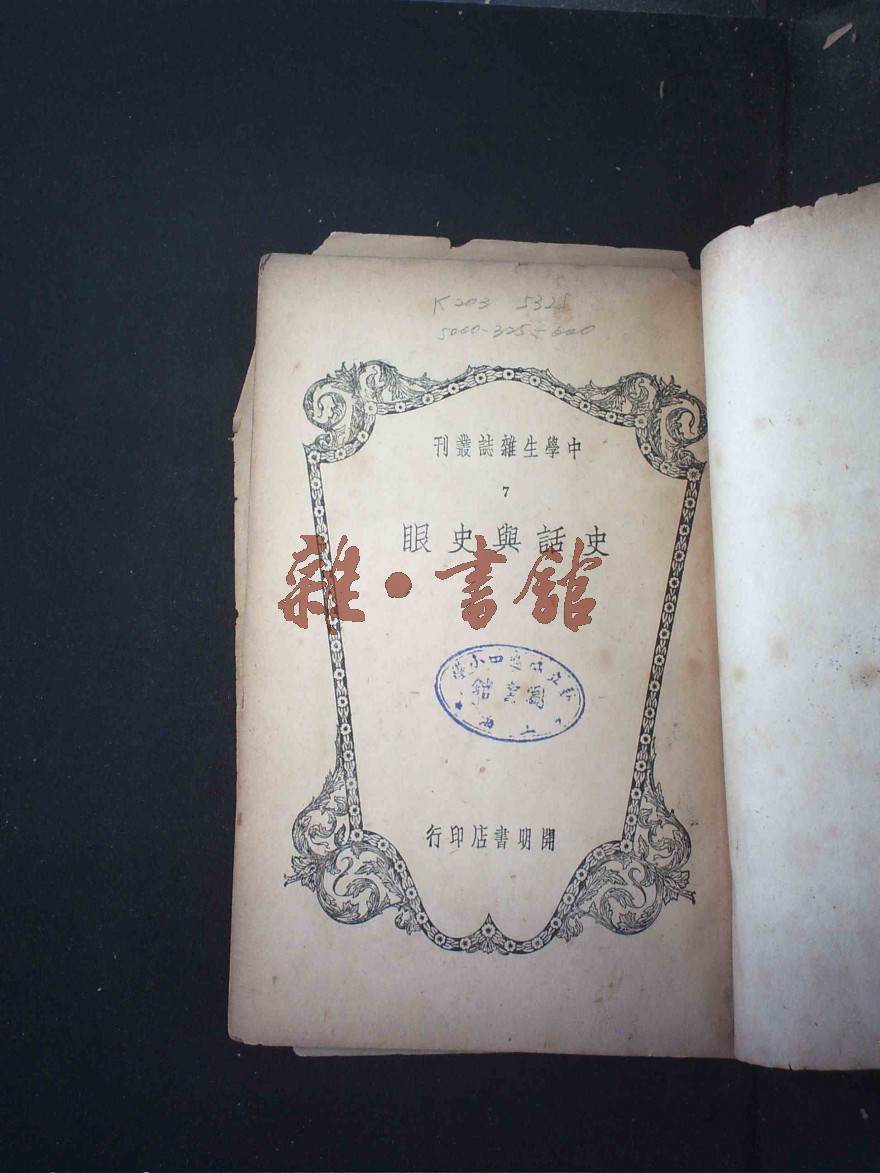 K203 5325
5000-325-600
中學生雜誌叢刊
7
史話與史眼
雜·書館
圖書館
開明書店印行